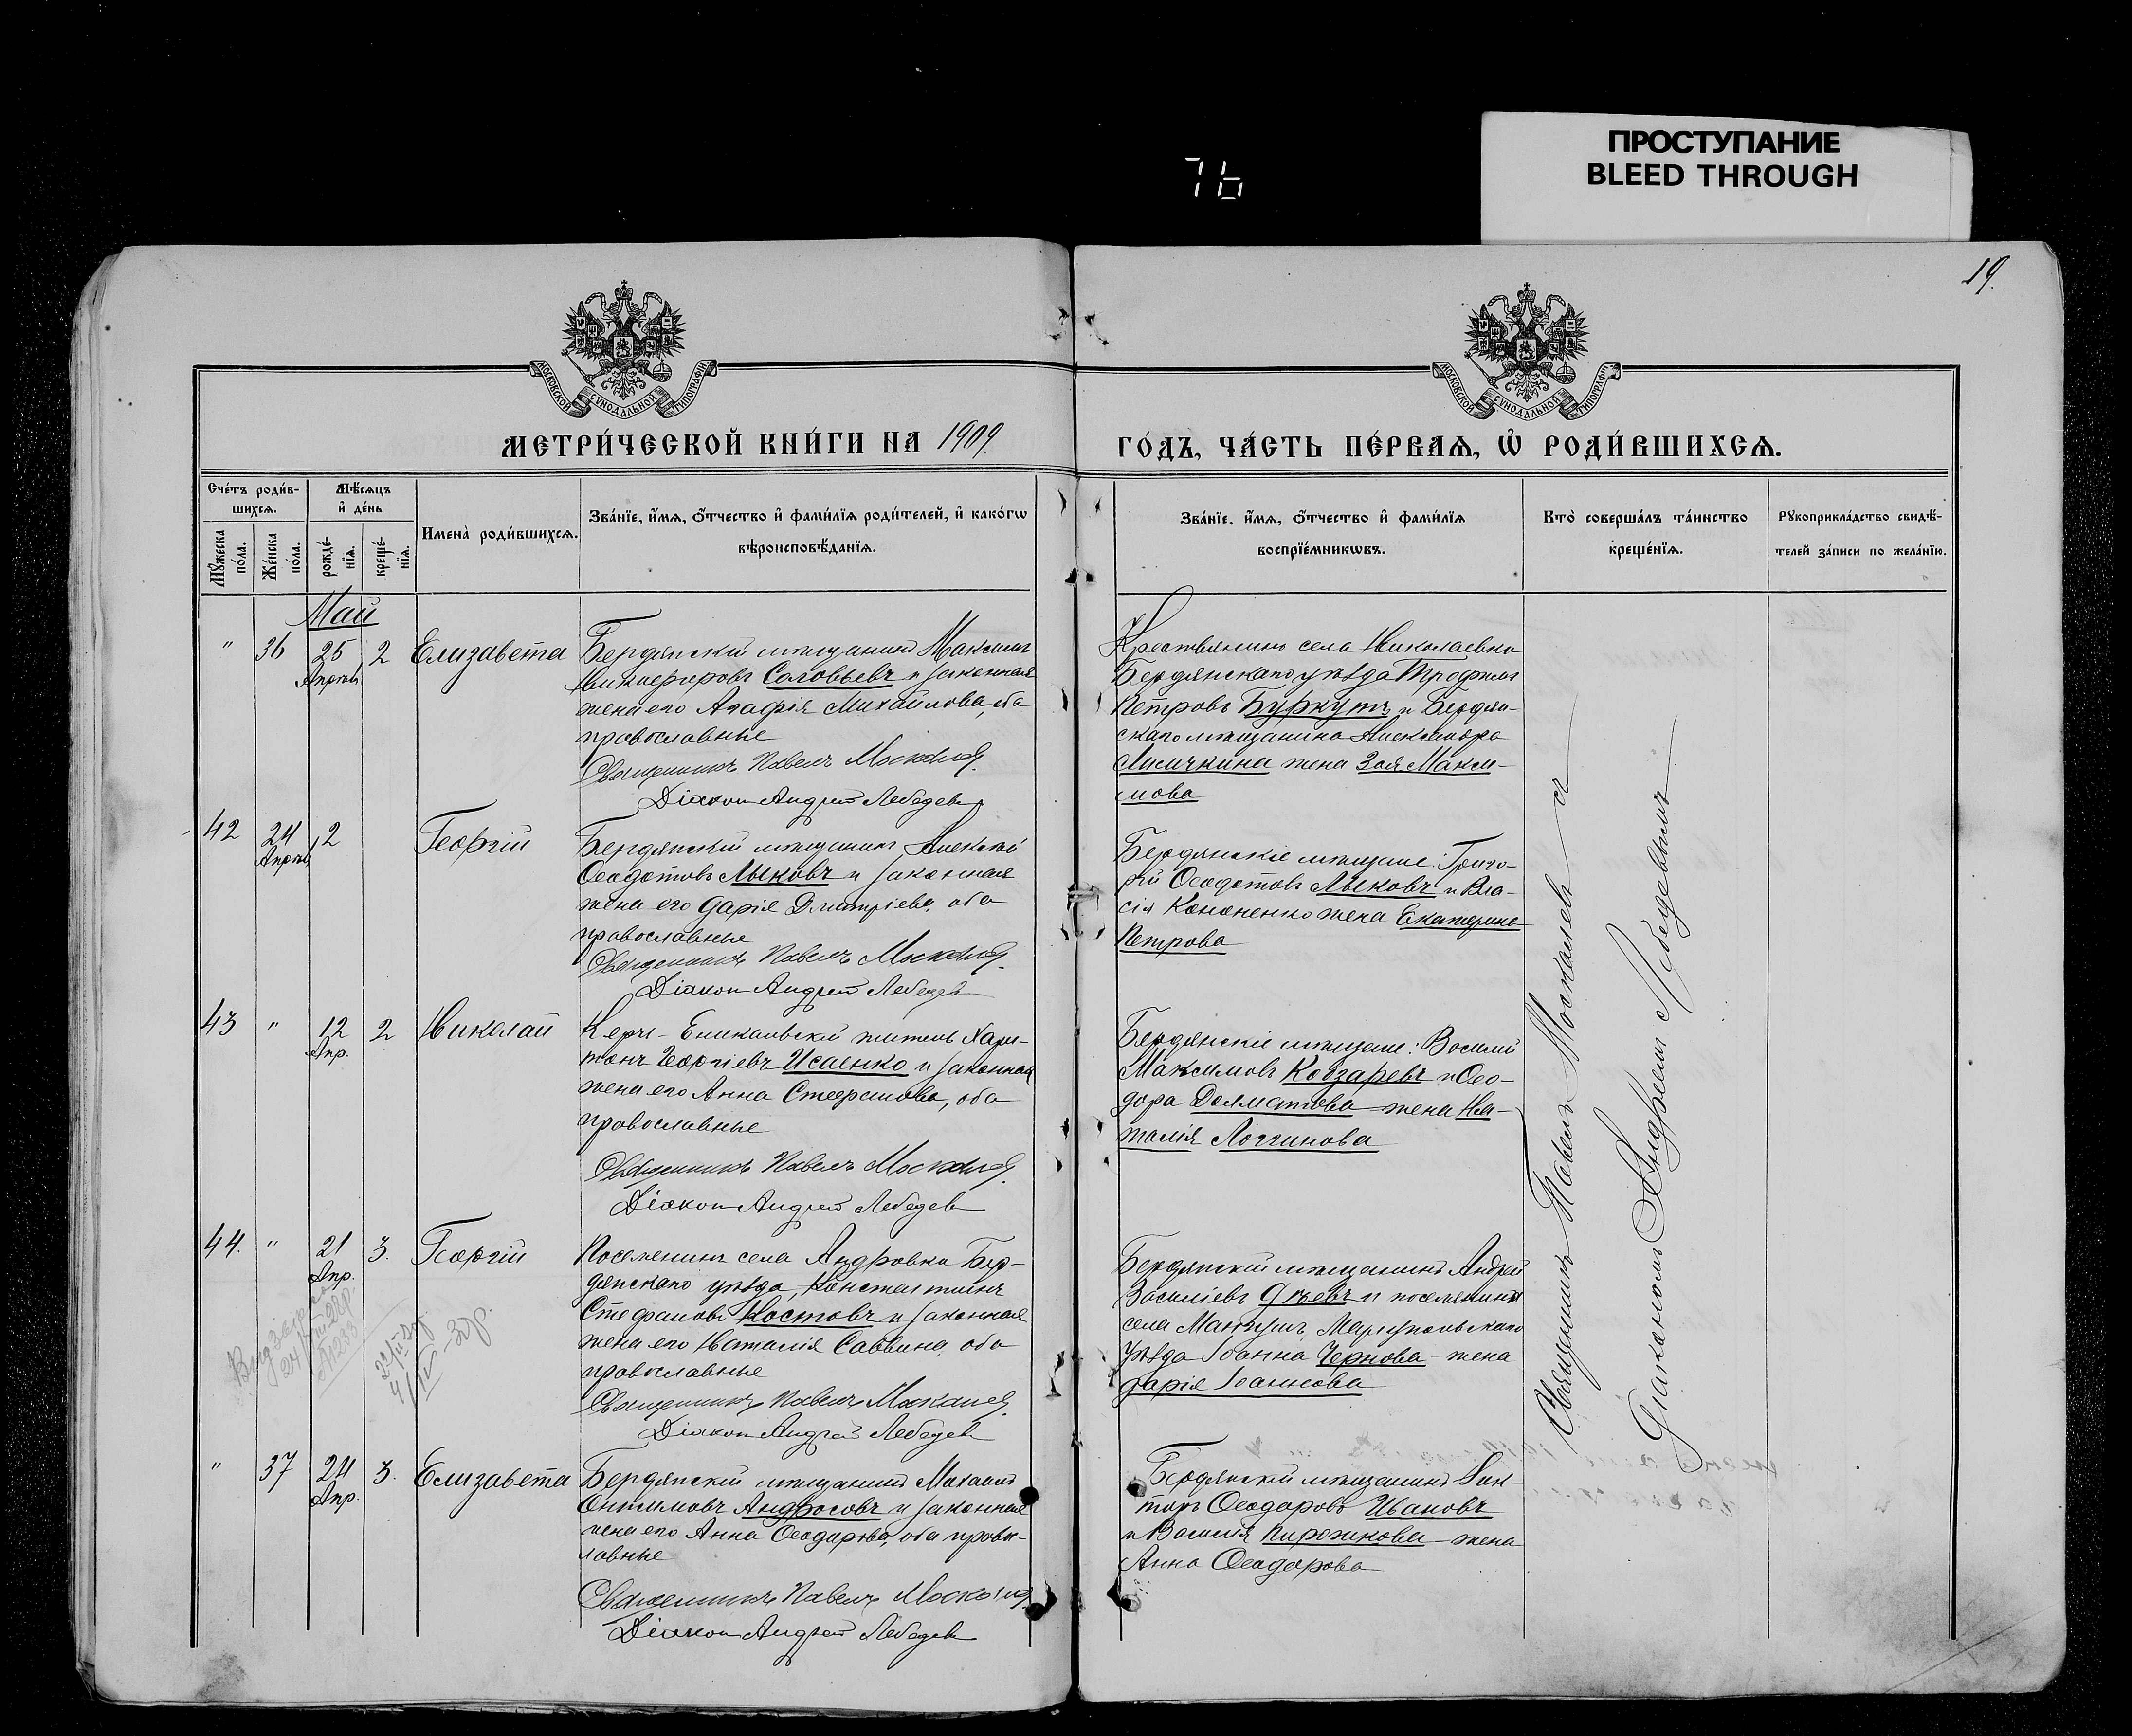 ПРОСТУПАНИЕ
BLEED THROUGH
76
19.
МОСКОВСКОЙ СУНОДАЛЬНОЙ ТИПОГРАФІИ
МОСКОВСКОЙ СУНОДАЛЬНОЙ ТИПОГРАФІИ
МЕТРИ́ЧЕСКОЙ КНИ́ГИ НА 1909
ГО́ДЪ, ЧА́СТЬ ПЕ́РВАѦ, Ѡ҆ РОДИ́ВШИХСѦ.
Сче́тъ роди́в-
шихсѧ.
Мѣ́сѧцъ
и҆ де́нь
Мꙋ́жеска
по́ла.
Же́нска
по́ла.
рожде́-
нїѧ.
креще́-
нїѧ.
Имена̀ роди́вшихсѧ.
Зва́нїе, и҆́мѧ, ѻ҆́тчество и҆ фами́лїѧ роди́телей, и҆ како́гѡ
вѣроисповѣ́данїѧ.
Зва́нїе, и҆́мѧ, ѻ҆́тчество и҆ фами́лїѧ
воспрїе́мникѡвъ.
Кто̀ соверша́лъ та́инство
креще́нїѧ.
Рꙋкоприкла́дство свидѣ́-
телей за́писи по жела́нїю.
Май
" 36 25 2 Елизавета
Апрѣля
Бердянскій мѣщанинъ Максимъ
Никифоровъ Соловьевъ и законная
жена его Агафія Михайлова, оба
православные
Священникъ Павелъ Москалев
Діакон Андрей Лебедев
Крестьянинъ села Николаевки
Бердянскаго уѣзда Трофимъ
Петровъ Буркутъ и Бердян-
скаго мѣщанина Александра
Лисичкина жена Зоя Макси-
мова
42 24 2 Георгій
Апрѣля
Бердянскій мѣщанинъ Алексѣй
Ѳеодотовъ Лыковъ и законная
жена его Дарія Дмитріева, оба
православные
Священникъ Павелъ Москалев
Діакон Андрей Лебедев
Бердянскіе мѣщане: Григо-
рій Ѳеодотовъ Лыковъ и Вла-
сія Кононенко жена Екатерина
Петрова
43 " 12 2 Николай
Апр.
Керчь-Еникальскій житель Хари-
тонъ Георгіевъ Исаенко и законная
жена его Анна Стефанова, оба
православные
Священникъ Павелъ Москалев
Діакон Андрей Лебедев
Бердянскіе мѣщане: Василій
Максимовъ Кобзаревъ и Ѳео-
дора Долматова жена На-
талія Логгинова
44. " 21 3. Георгій
Апр.
Поселянинъ села Андровки Бер-
дянскаго уѣзда, Константинъ
Стефановъ Костовъ и законная
жена его Наталія Саввина, оба
православные
Священникъ Павелъ Москалев
Діакон Андрей Лебедев
Бердянскій мѣщанинъ Андрей
Василіевъ и поселянина
села Мангушъ, Маріупольскаго
уѣзда Іоанна Чернова жена
Дарія Іоаннова
" 37 24 3. Елизавета
Апр.
Бердянскій мѣщанинъ Михаилъ
Онисимовъ Андросовъ и законная
жена его Анна Ѳеодорова, оба правос-
лавные
Священникъ Павелъ Москалев
Діакон Андрей Лебедев
Бердянскій мѣщанинъ Вик-
торъ Ѳеодоровъ Ивановъ
и Василія Пирожкова жена
Анна Ѳеодорова
Священникъ Павелъ Москалевъ с
Діакономъ Андреемъ Лебедевымъ